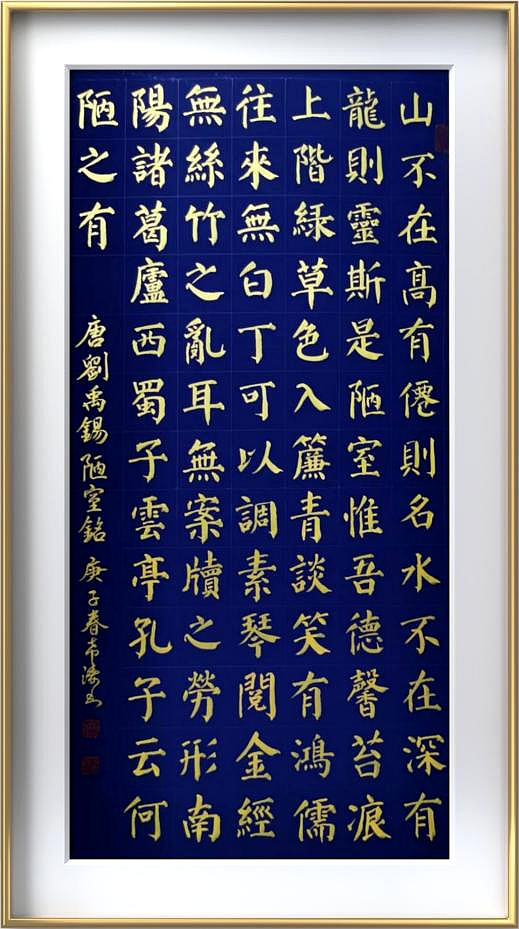 山不在髙有僊則名水不在深有
龍則靈斯是陋室惟吾德馨苔痕
上階綠草色入簾青談笑有鴻儒
往來無白丁可以調素琴閱金經
無絲竹之亂耳無案牘之勞形南
陽諸葛廬西蜀子雲亭孔子云何
陋之有
唐劉禹錫陋室銘 庚子春